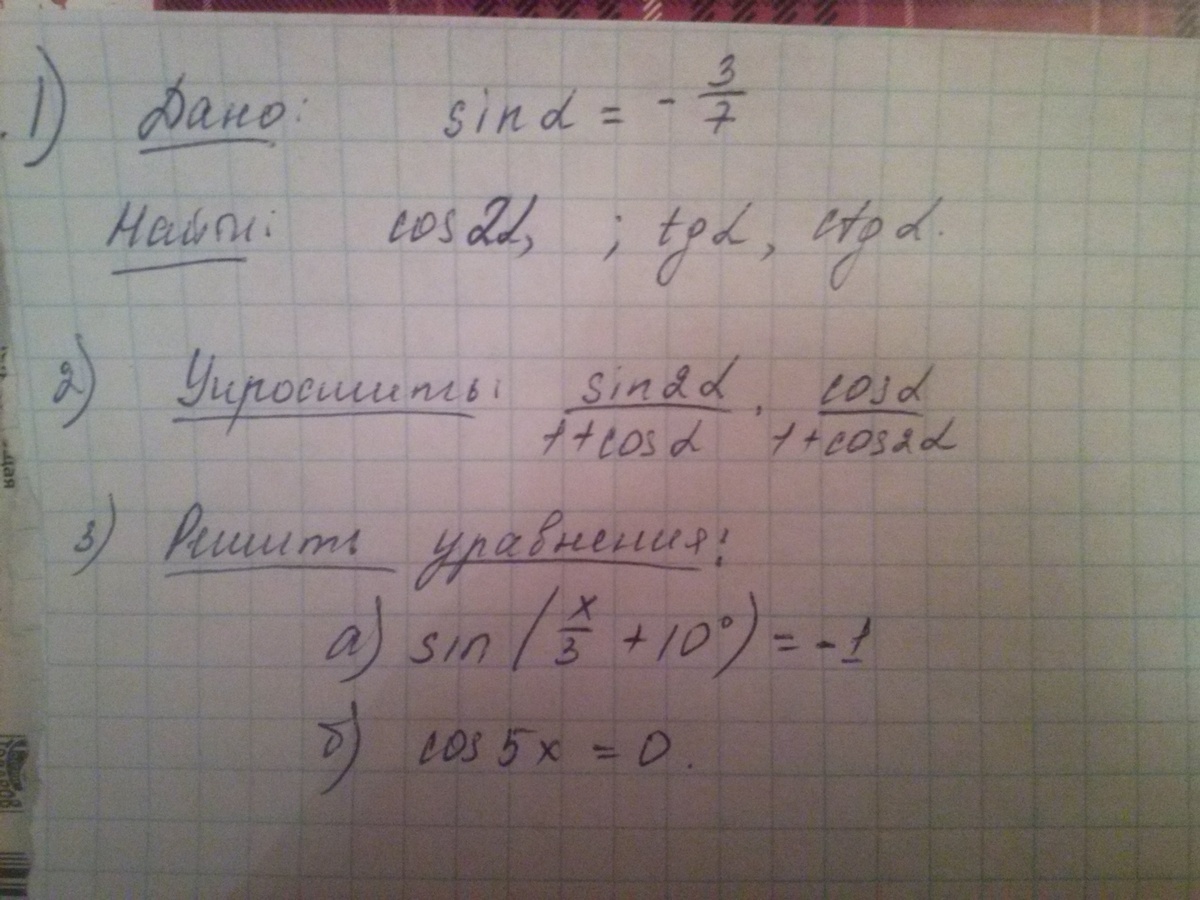 1) Дано: sin α = - 3/7
Найти: cos 2α, ; tg α, ctg α.
2) Упростить: sin 2α / 1 + cos α · cos α / 1 + cos 2α
3) Решить уравнения:
а) sin (x/3 + 10°) = -1
б) cos 5x = 0.